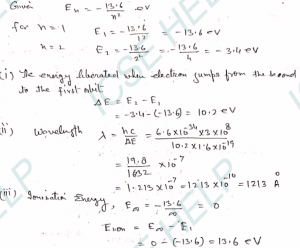 Given Eₙ = -13.6/n² eV
for n = 1 E₁ = -13.6/1² = -13.6 eV
n = 2 E₂ = -13.6/2² = -13.6/4 = -3.4 eV
(i) The energy liberated when electron jumps from the second
to the first orbit
ΔE = E₂ - E₁
= -3.4 - (-13.6) = 10.2 eV
(ii) Wavelength λ = hc/ΔE = 6.6 × 10⁻³⁴ × 3 × 10⁸ / 10.2 × 1.6 × 10⁻¹⁹
= 19.8/1632 × 10⁻⁷
= 1.213 × 10⁻⁷ = 1213 × 10⁻¹⁰ = 1213 Å
(iii) Ionisation Energy, E∞ = -13.6/∞ = 0
Eion = E∞ - E₁
= 0 - (-13.6) = 13.6 eV